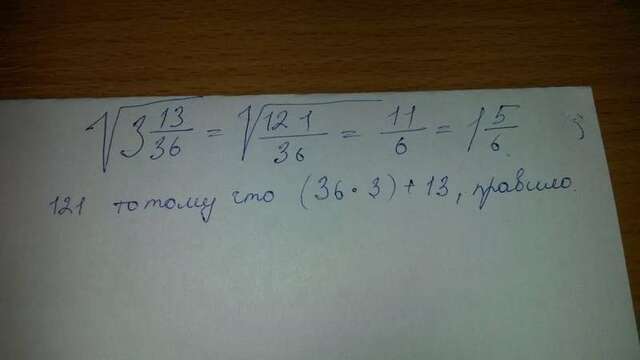 √3 13/36 = √121/36 = 11/6 = 1 5/6 ;
121 потому что (36·3)+13, правило.